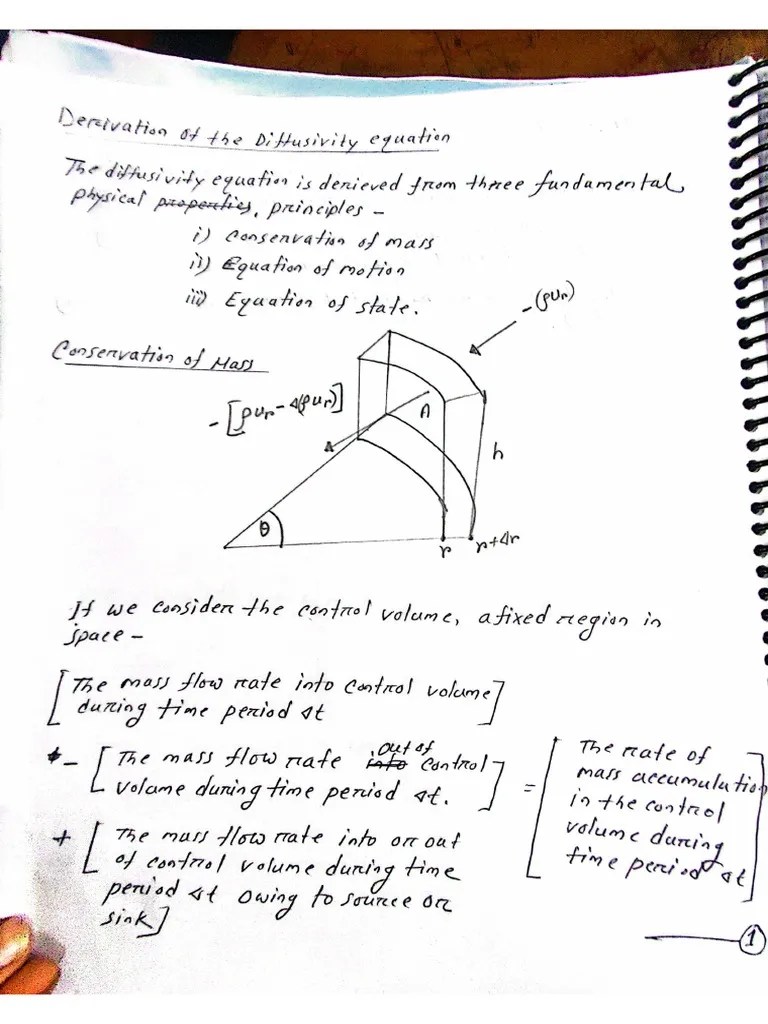 Derivation of the Diffusivity equation
The diffusivity equation is derieved from three fundamental
physical properties, principles -
i) Conservation of mass
ii) Equation of motion
iii) Equation of state.
-(ρUr)
Conservation of Mass
-[ρUr - Δ(ρUr)]
A
h
θ
r r+Δr
If we consider the control volume, a fixed region in
space -
[The mass flow rate into control volume
during time period Δt]
- [The mass flow rate into out of control
volume during time period Δt.]
+ [The mass flow rate into or out
of control volume during time
period Δt owing to source or
sink]
= [The rate of
mass accumulation
in the control
volume during
time period Δt]
1